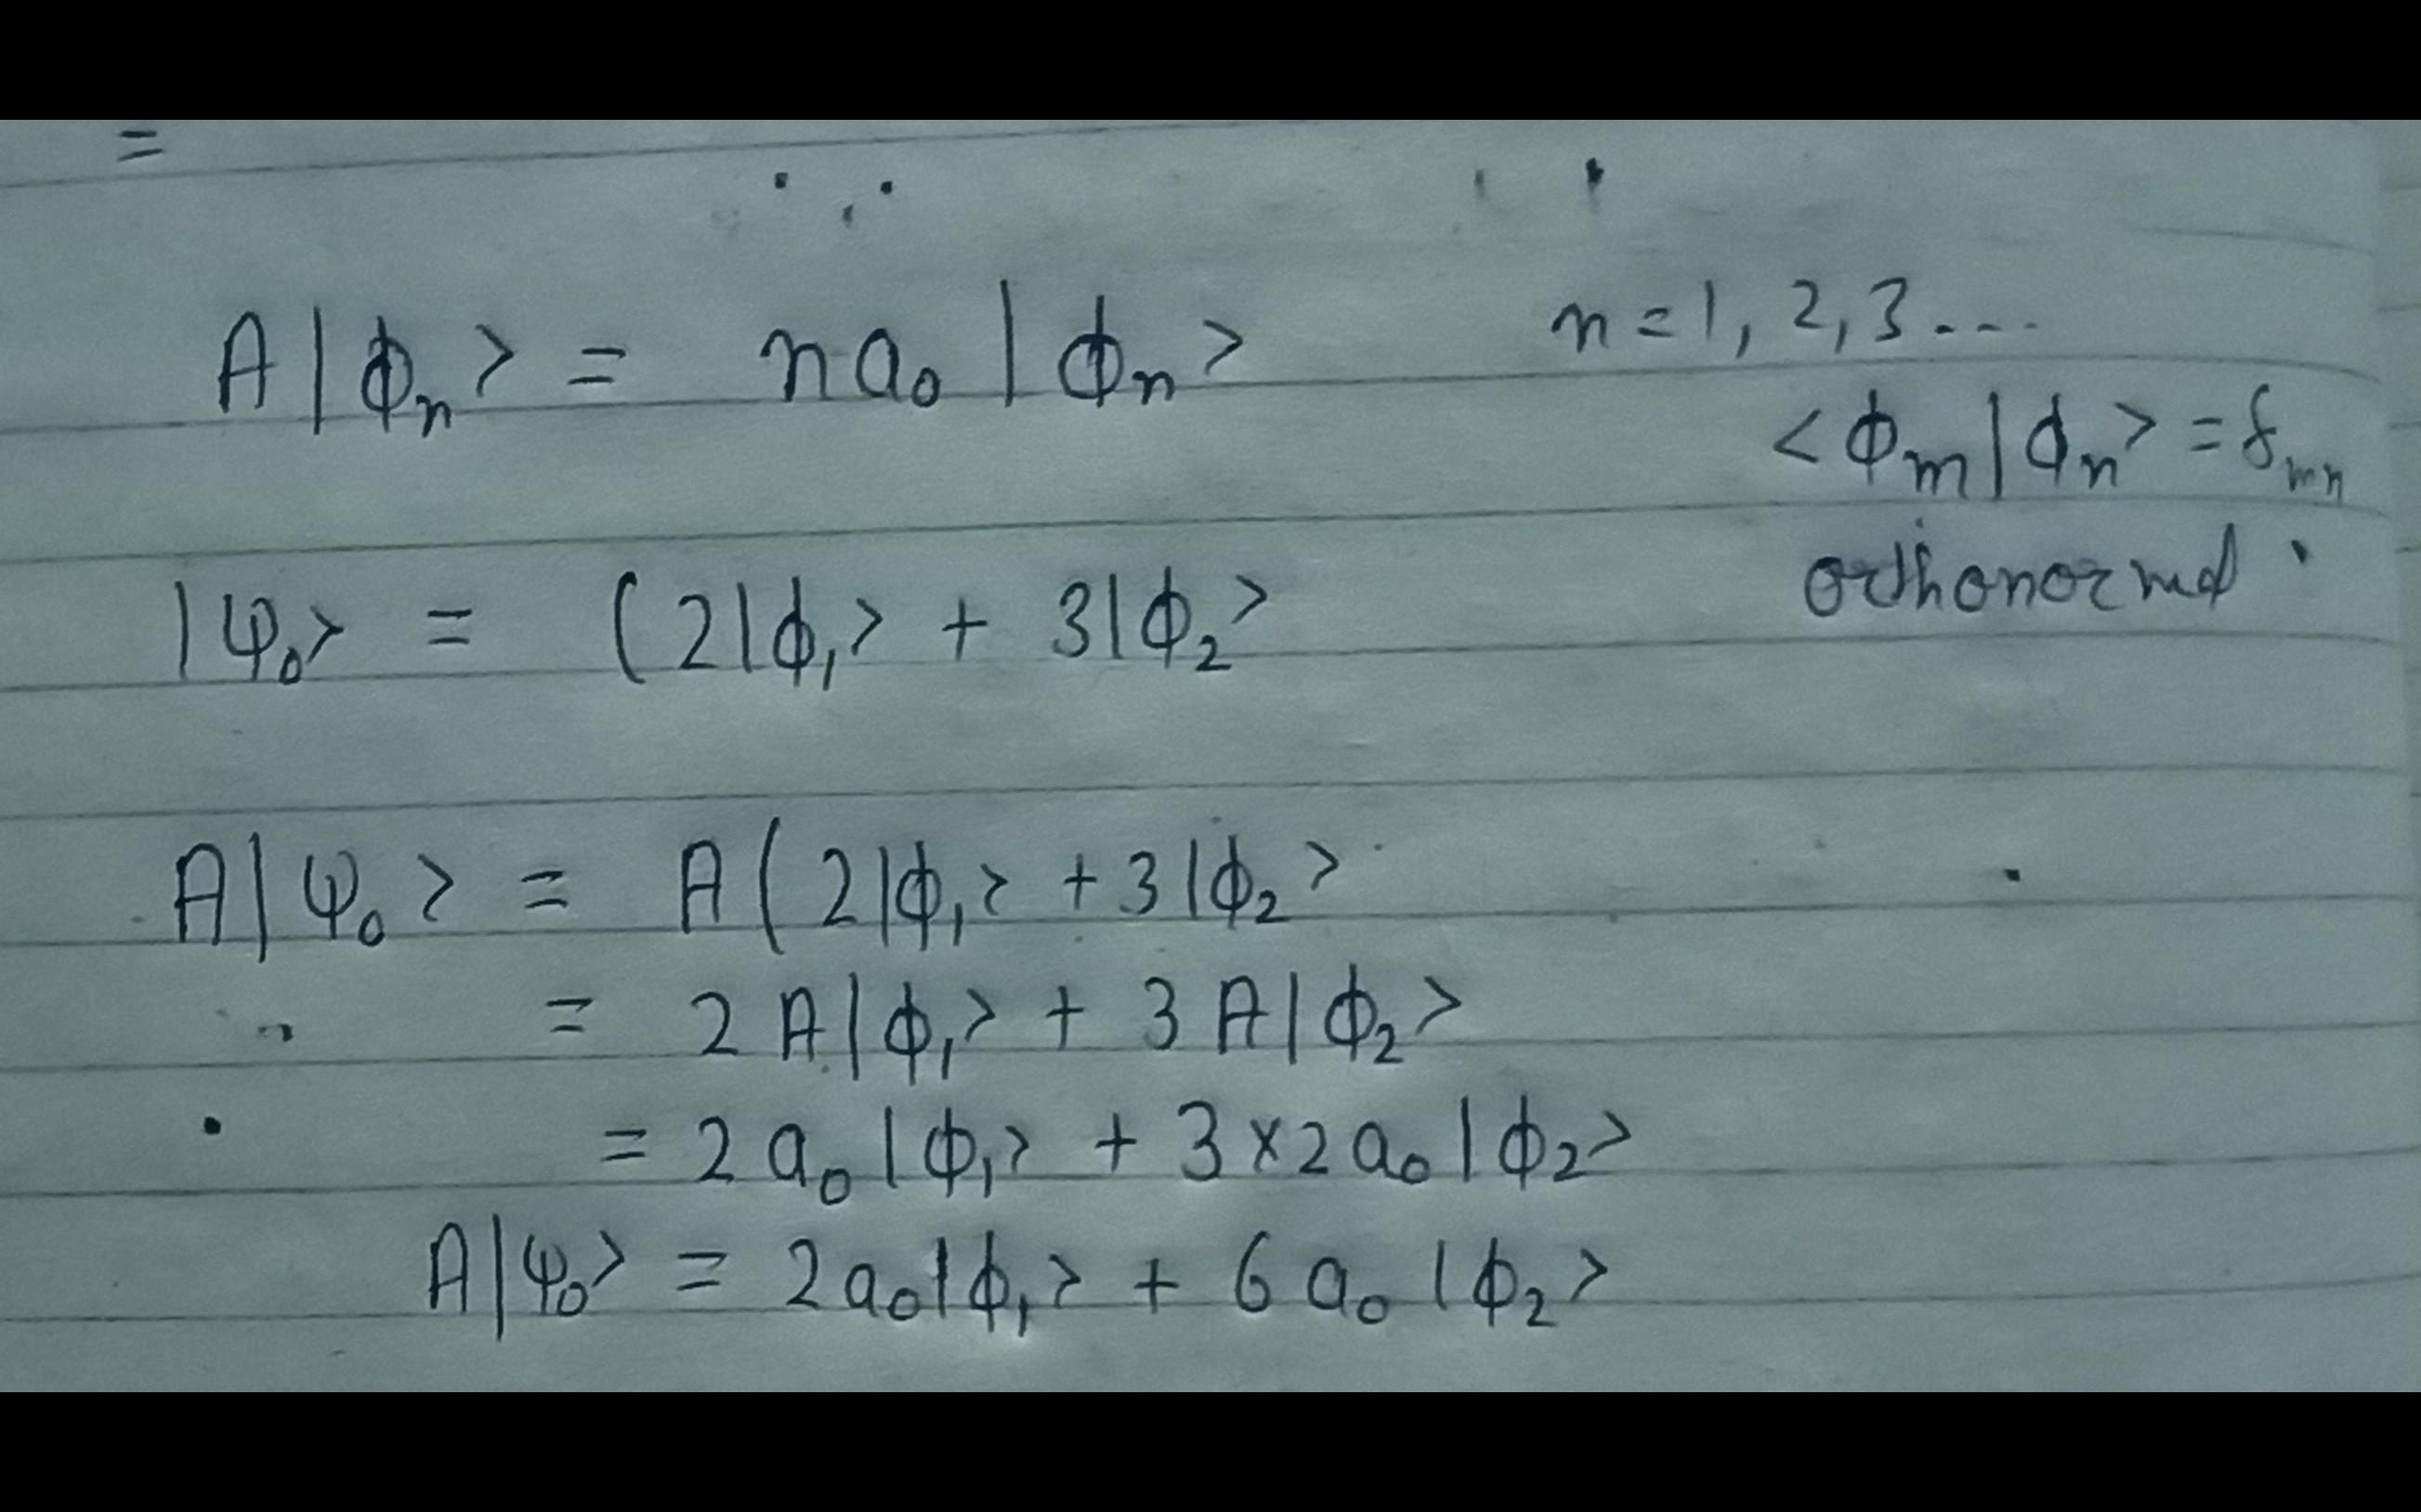 =
A|ϕₙ> = na₀|ϕₙ> n=1, 2, 3 ---
<ϕₘ|ϕₙ> = δₘₙ
orthonormal
|ψ₀> = (2|ϕ₁> + 3|ϕ₂>
A|ψ₀> = A(2|ϕ₁> + 3|ϕ₂>
= 2A|ϕ₁> + 3A|ϕ₂>
= 2a₀|ϕ₁> + 3×2a₀|ϕ₂>
A|ψ₀> = 2a₀|ϕ₁> + 6a₀|ϕ₂>